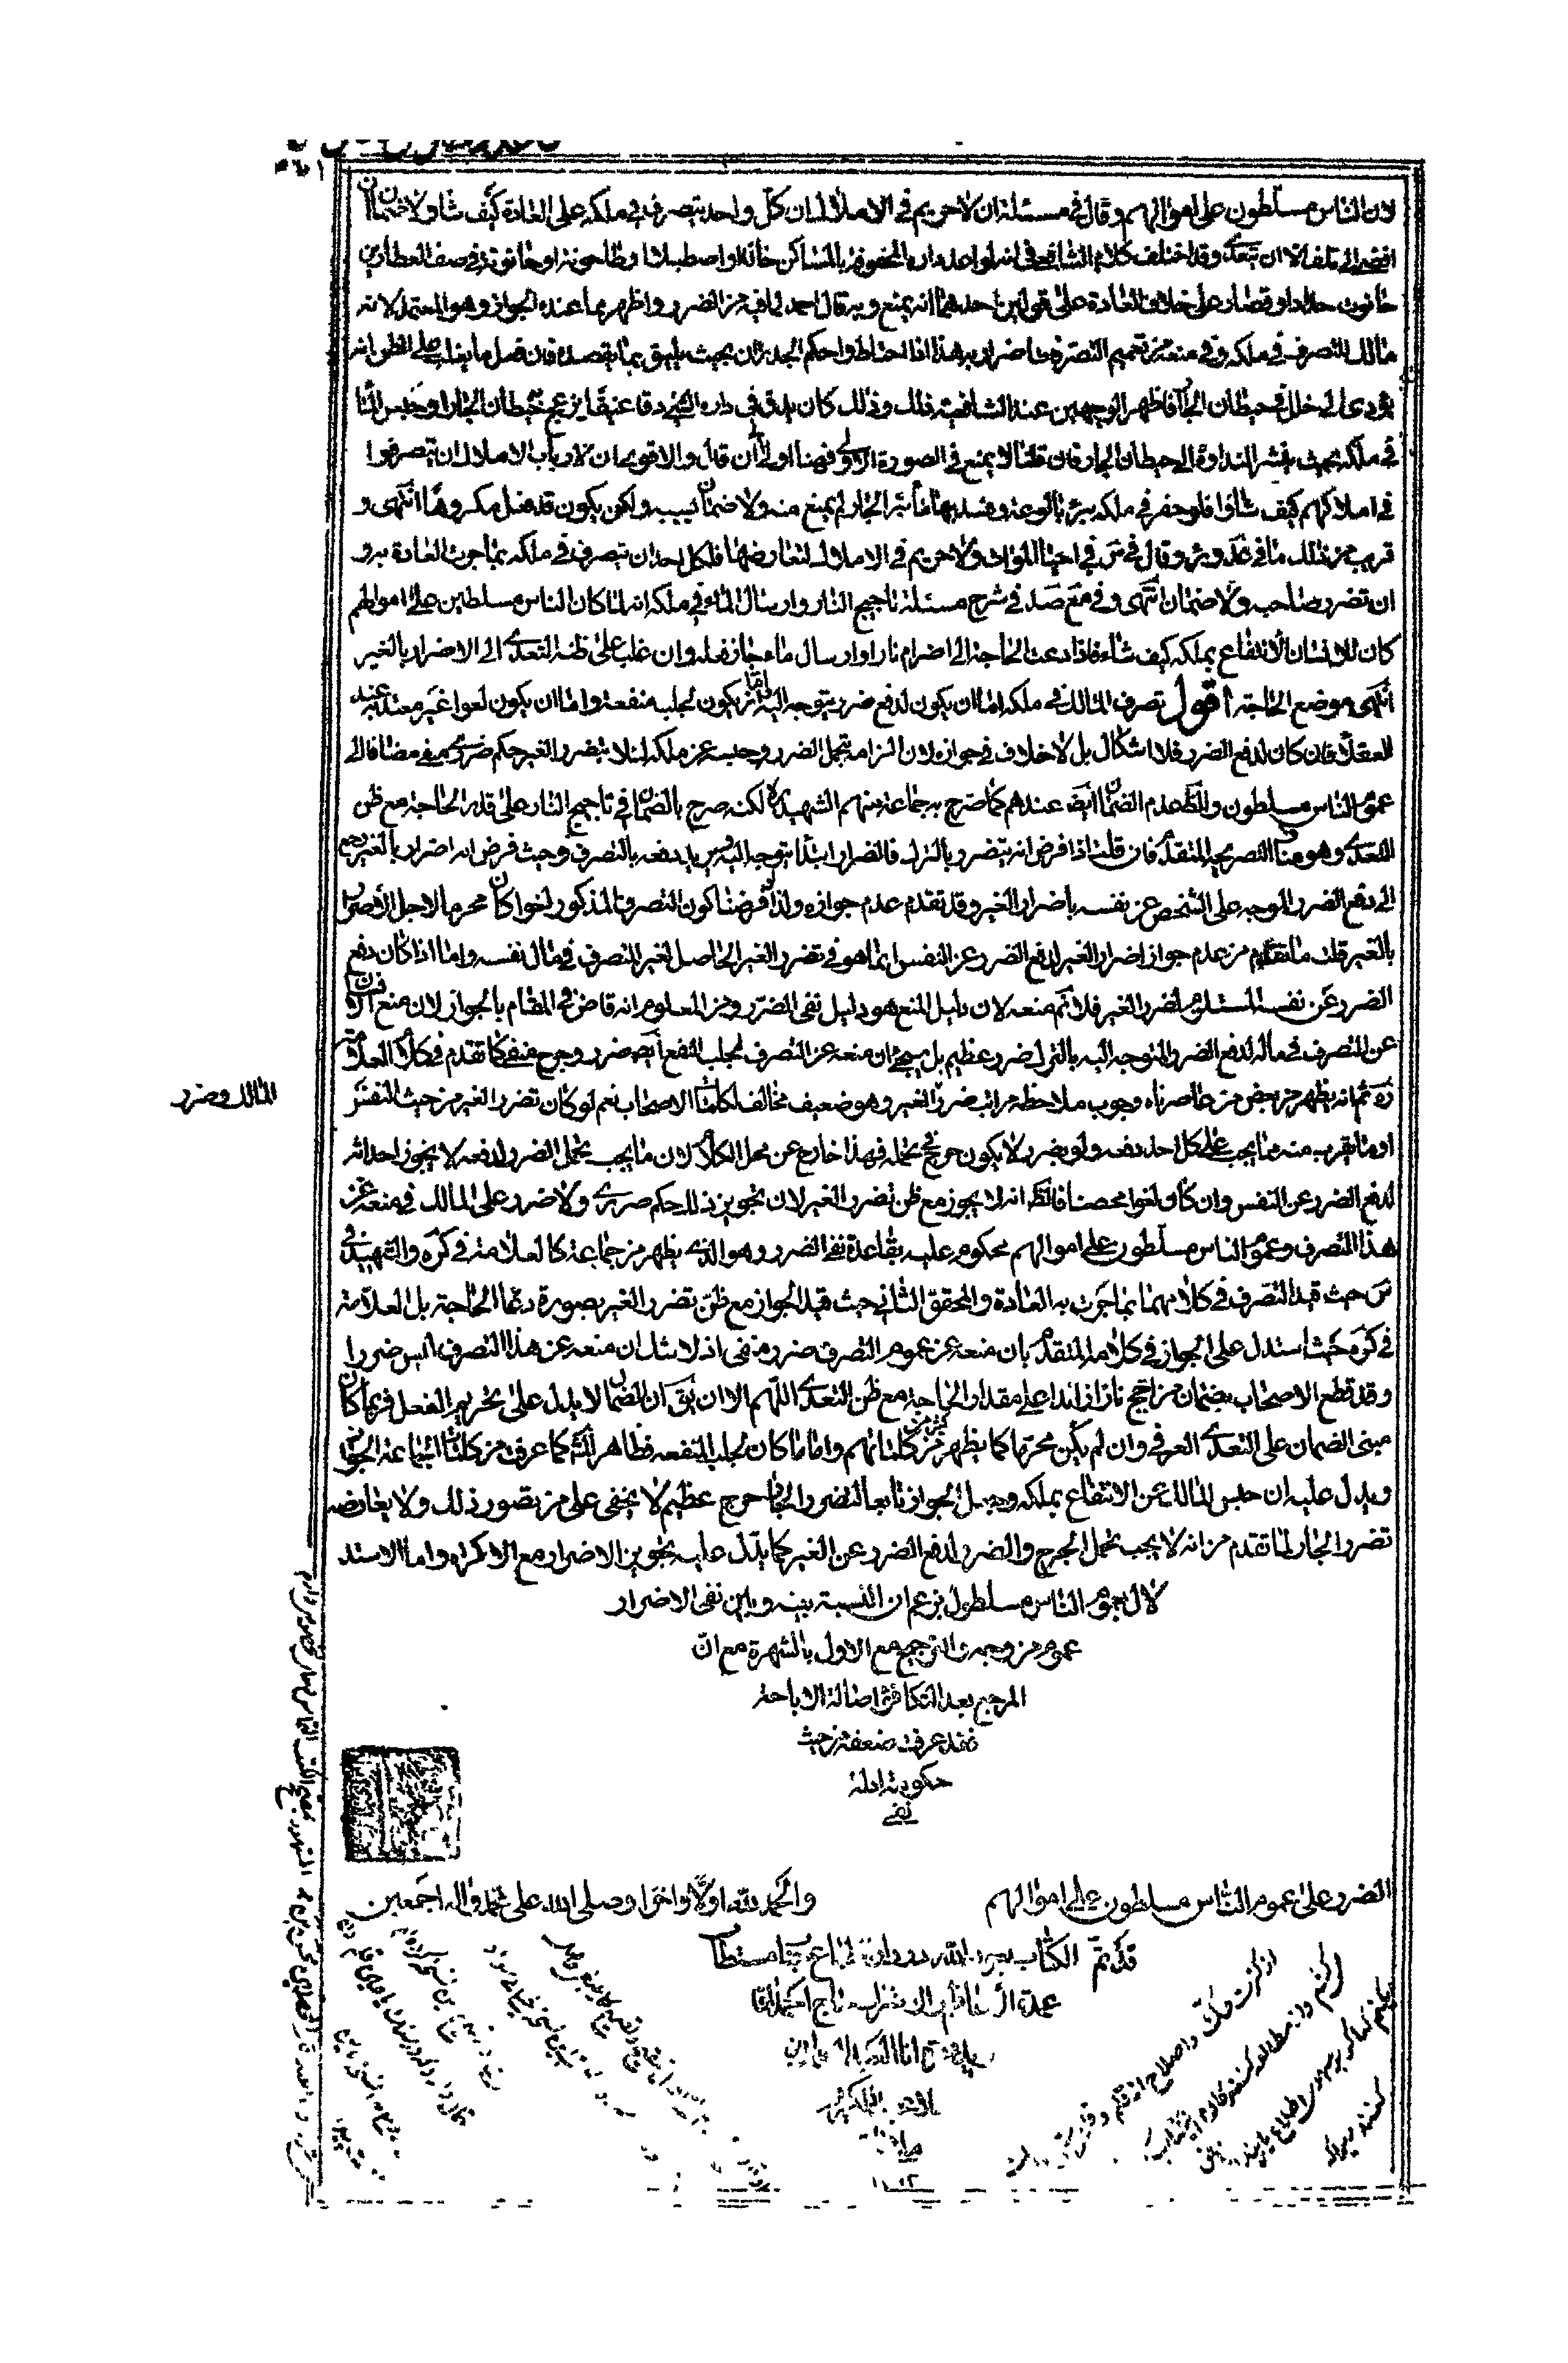 لان الناس مسلطون على اموالهم وقال فى مسئلة ان لا حريم فى الاملاك لان كل واحد يتصرف فى ملكه على العادة كيف شاء ولا ضمان ان
افضى الى تلف الا ان يتعدى وقد اختلف كلام الشافعى فى انه لو اعد داره المحفوفة بالمساكن خانا او اصطبلا او طاحونة او حانوته فى صف العطارين
حانوت حداد او قصار على خلاف العادة على قولين احدهما انه يمنع وبه قال احمد لما فيه من الضرر واظهرهما عنده الجواز وهو المعتمد لانه
مالك للتصرف فى ملكه وفى منعه من تعميم التصرفات اضرار به هذا اذا احتاط واحكم الجدران بحيث يليق بما يقصده فان فعل ما يغلب على الظن انه
يؤدى الى خلل فى حيطان الجار فاظهر الوجهين عند الشافعية ذلك وذلك كان يدق فى داره الشىء دقا عنيفا يزعج حيطان الجار او حبس الماء
فى ملكه بحيث ينشر النداوة الى حيطان الجار فان قلنا لا يمنع فى الصورة الاولى فهنا اولى الى ان قال والاقوى ان لارباب الاملاك ان يتصرفوا
فى املاكهم كيف شاؤا فلو حفر فى ملكه بئر بالوعة وفسد بها ماء بئر الجار لم يمنع منه ولا ضمان بسببه ولكن يكون قد فعل مكروها انتهى و
قريب من ذلك ما فى عد وير وقال فى س فى احياء الموات ولا حريم فى الاملاك لتعارضها فلكل احد ان يتصرف فى ملكه بما جرت العادة به و
ان تضرر صاحبه ولا ضمان انتهى وفى مع صد فى شرح مسئلة تاجيج النار وارسال الماء فى ملكه انه لما كان الناس مسلطين على اموالهم
كان للانسان الانتفاع بملكه كيف شاء فاذا دعت الحاجة الى اضرام نار او ارسال ماء جاز فعله وان غلب على ظنه التعدى الى الاضرار بالغير
انتهى موضع الحاجة اقول تصرف المالك فى ملكه اما ان يكون لدفع ضرر يتوجه اليه واما ان يكون لجلب منفعة واما ان يكون لغوا غير معتد به عند
العقلاء فان كان لدفع الضرر فلا اشكال بل لا خلاف فى جوازه لان الزامه بتحمل الضرر وحبسه عن ملكه لئلا يتضرر الغير حكم ضررى منفى مضافا الى
عموم الناس مسلطون والظ عدم الضمان ايضا عندهم كما صرح به جماعة منهم الشهيد ره لكنه صرح بالضمان فى تاجيج النار على قدر الحاجة مع ظن
التعدى وهو مناف لتصريحه المتقدم فان قلت اذا فرض انه يتضرر بالترك فالضرر ابتداء يتوجه اليه ويريد دفعه بالتصرف وحيث فرض انه اضرار بالغير رجع
الى دفع الضرر الموجه على الشخص عن نفسه باضرار الغير وقد تقدم عدم جوازه ولذا لو فرضنا كون التصرف المذكور لغوا كان محرما لاجل الاضرار
بالغير قلت ما تقدم من عدم جواز اضرار الغير لدفع الضرر عن النفس انما هو فى تضرر الغير الحاصل لغير التصرف فى مال نفسه واما اذا كان دفع
الضرر عن نفسه المستلزم لضرر الغير فلا نم منعه لان دليل المنع هو دليل نفى الضرر ومن المعلوم انه قاض فى المقام بالجواز لان منع الانسان
عن التصرف فى ماله لدفع الضرر المتوجه اليه بالترك ضرر عظيم بل سيجئ ان منعه عن التصرف لجلب النفع ايضا ضرر وحرج منفى كما تقدم فى كلام العلامة
ره ثم انه يظهر من بعض من عاصرناه وجوب ملاحظة مراتب ضرر الغير وهو ضعيف مخالف لكلمات الاصحاب نعم لو كان تضرر الغير من حيث النفس
المالك وضرر
او ما يقرب منه مما يجب على كل احد دفعه ولو بضرر لا يكون حرج فى تحمله فهذا خارج عن محل الكلام لان ما يجب تحمل الضرر لدفعه لا يجوز احداثه
لدفع الضرر عن النفس وان كان لغوا محضا فالظ انه لا يجوز مع ظن تضرر الغير لان تجويز ذلك حكم ضررى ولا ضرر على المالك فى منعه عن
هذا التصرف وعموم الناس مسلطون على اموالهم محكوم عليه بقاعدة نفى الضرر وهو الذى يظهر من جماعة كالعلامة فى كره والشهيد فى
س حيث قيد التصرف فى كلامهما بما جرت به العادة والمحقق الثانى حيث قيد الجواز مع ظن تضرر الغير بصورة دعاء الحاجة بل العلامة
فى كره حيث استدل على الجواز فى كلامه المتقدم بان منعه عن عموم التصرف ضرر منفى اذ لا شك ان منعه عن هذا التصرف ليس ضررا
وقد قطع الاصحاب بضمان من اجج نارا زائدا على مقدار الحاجة مع ظن التعدى اللهم الا ان يق ان الضمان لا يدل على تحريم الفعل فربما كان
مبنى الضمان على التعدى العرفى وان لم يكن محرما كما يظهر من كثير من كلماتهم واما ما كان لجلب المنفعة فظاهر المش كما عرفت من كلمات الجماعة الجواز
ويدل عليه ان حبس المالك عن الانتفاع بملكه وجعل الجواز تابعا لتضرر الجار حرج عظيم لا يخفى على من تصور ذلك ولا يعارضه
تضرر الجار لما تقدم من انه لا يجب تحمل الحرج والضرر لدفع الضرر عن الغير كما يدل عليه تجويز الاضرار مع الاكراه واما الاستد
لال بعموم الناس مسلطون بزعم ان النسبة بينه وبين نفى الاضرار
عموم من وجه والترجيح مع الاول بالشهرة مع ان
المرجع بعد التكافؤ اصالة الاباحة
فقد عرفت ضعفه من حيث
حكومة ادلة
نفى
الضرر على عموم الناس مسلطون على اموالهم
والحمد لله اولا واخرا وصلى الله على محمد واله اجمعين
قد تم الكتاب بعون الله